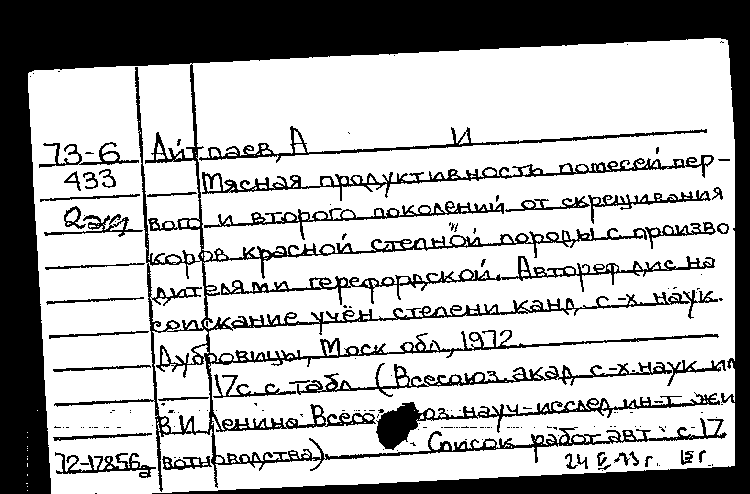 73-6 Айтпаев, А И
433 Мясная продуктивность помесей пер-
2экз вого и второго поколений от скрещивания
коров красной степной породы с произво-
дителями герефордской. Автореф дис на
соискание учён. степени канд. с-х наук.
Дубровицы, Моск обл, 1972.
17с с табл (Всесоюз. акад с-х. наук им
В И Ленина Всесоюз науч-исслед ин-т жи
72-17856а вотноводства). Список работ авт: с. 17
24 73г.